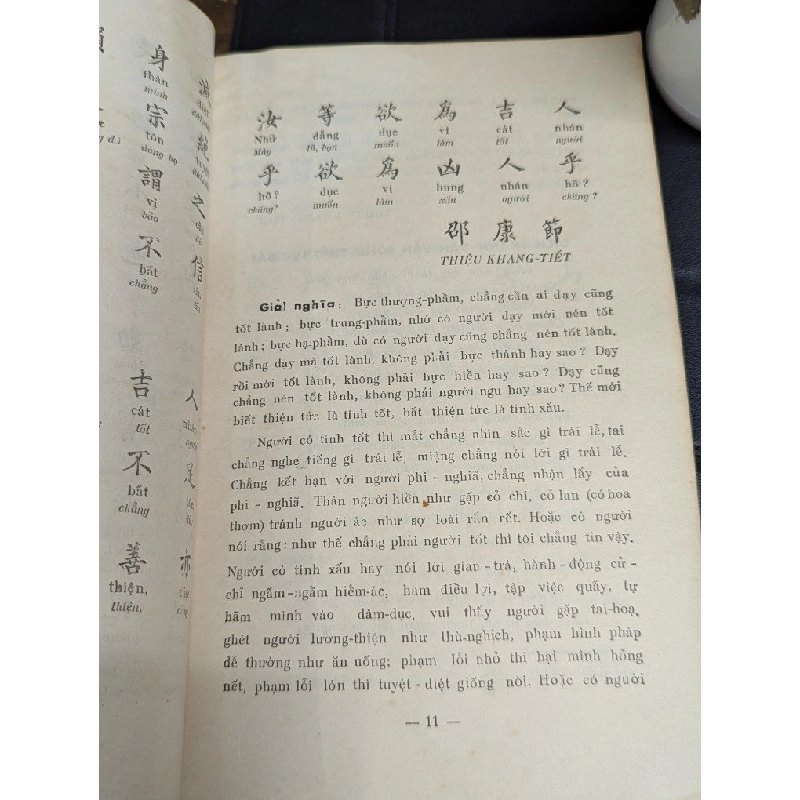 身
thân
mình
宗
tôn
dòng họ
謂
vị
bảo
不
bất
chẳng
吉
cát
tốt
不
bất
chẳng
善
thiện,
thiện,
之
信
人
足
亦
汝 等 欲 為 吉 人
Nhữ đẳng dục vi cát nhân
Mày lũ, bọn muốn làm tốt người
乎 欲 為 凶 人 乎
hồ? dục vi hung nhân hồ?
chăng? muốn làm xấu người chăng?
邵 康 節
THIỆU KHANG-TIẾT
Giải nghĩa: Bực thượng-phầm, chẳng cần ai dạy cũng
tốt lành; bực trung-phầm, nhờ có người dạy mới nên tốt
lành; bực hạ-phầm, dù có người dạy cũng chẳng nên tốt lành.
Chẳng dạy mà tốt lành, không phải bực thánh hay sao? Dạy
rồi mới tốt lành, không phải bực hiền hay sao? Dạy cũng
chẳng nên tốt lành, không phải người ngu hay sao? Thế mới
biết thiện tức là tính tốt, bất thiện tức là tính xấu.
Người có tính tốt thì mắt chẳng nhìn sắc gì trái lễ, tai
chẳng nghe tiếng gì trái lễ, miệng chẳng nói lời gì trái lễ.
Chẳng kết bạn với người phi - nghiã, chẳng nhận lấy của
phi - nghiã. Thân người hiền như gặp cỏ chi, cỏ lan (có hoa
thơm) tránh người ác như sợ loài rắn rết. Hoặc có người
nói rằng: như thế chẳng phải người tốt thì tôi chẳng tin vậy.
Người có tính xấu hay nói lời gian - trá, hành - động cử -
chỉ ngấm-ngầm hiềm-ác, ham điều lợi, tập việc quấy, tự
hãm mình vào dâm-dục, vui thấy người gặp tai-hoạ,
ghét người lương-thiện như thù-nghịch, phạm hình pháp
dễ thường như ăn uống; phạm lỗi nhỏ thì hại mình hỏng
nết, phạm lỗi lớn thì tuyệt - diệt giống nòi. Hoặc có người
— 11 —